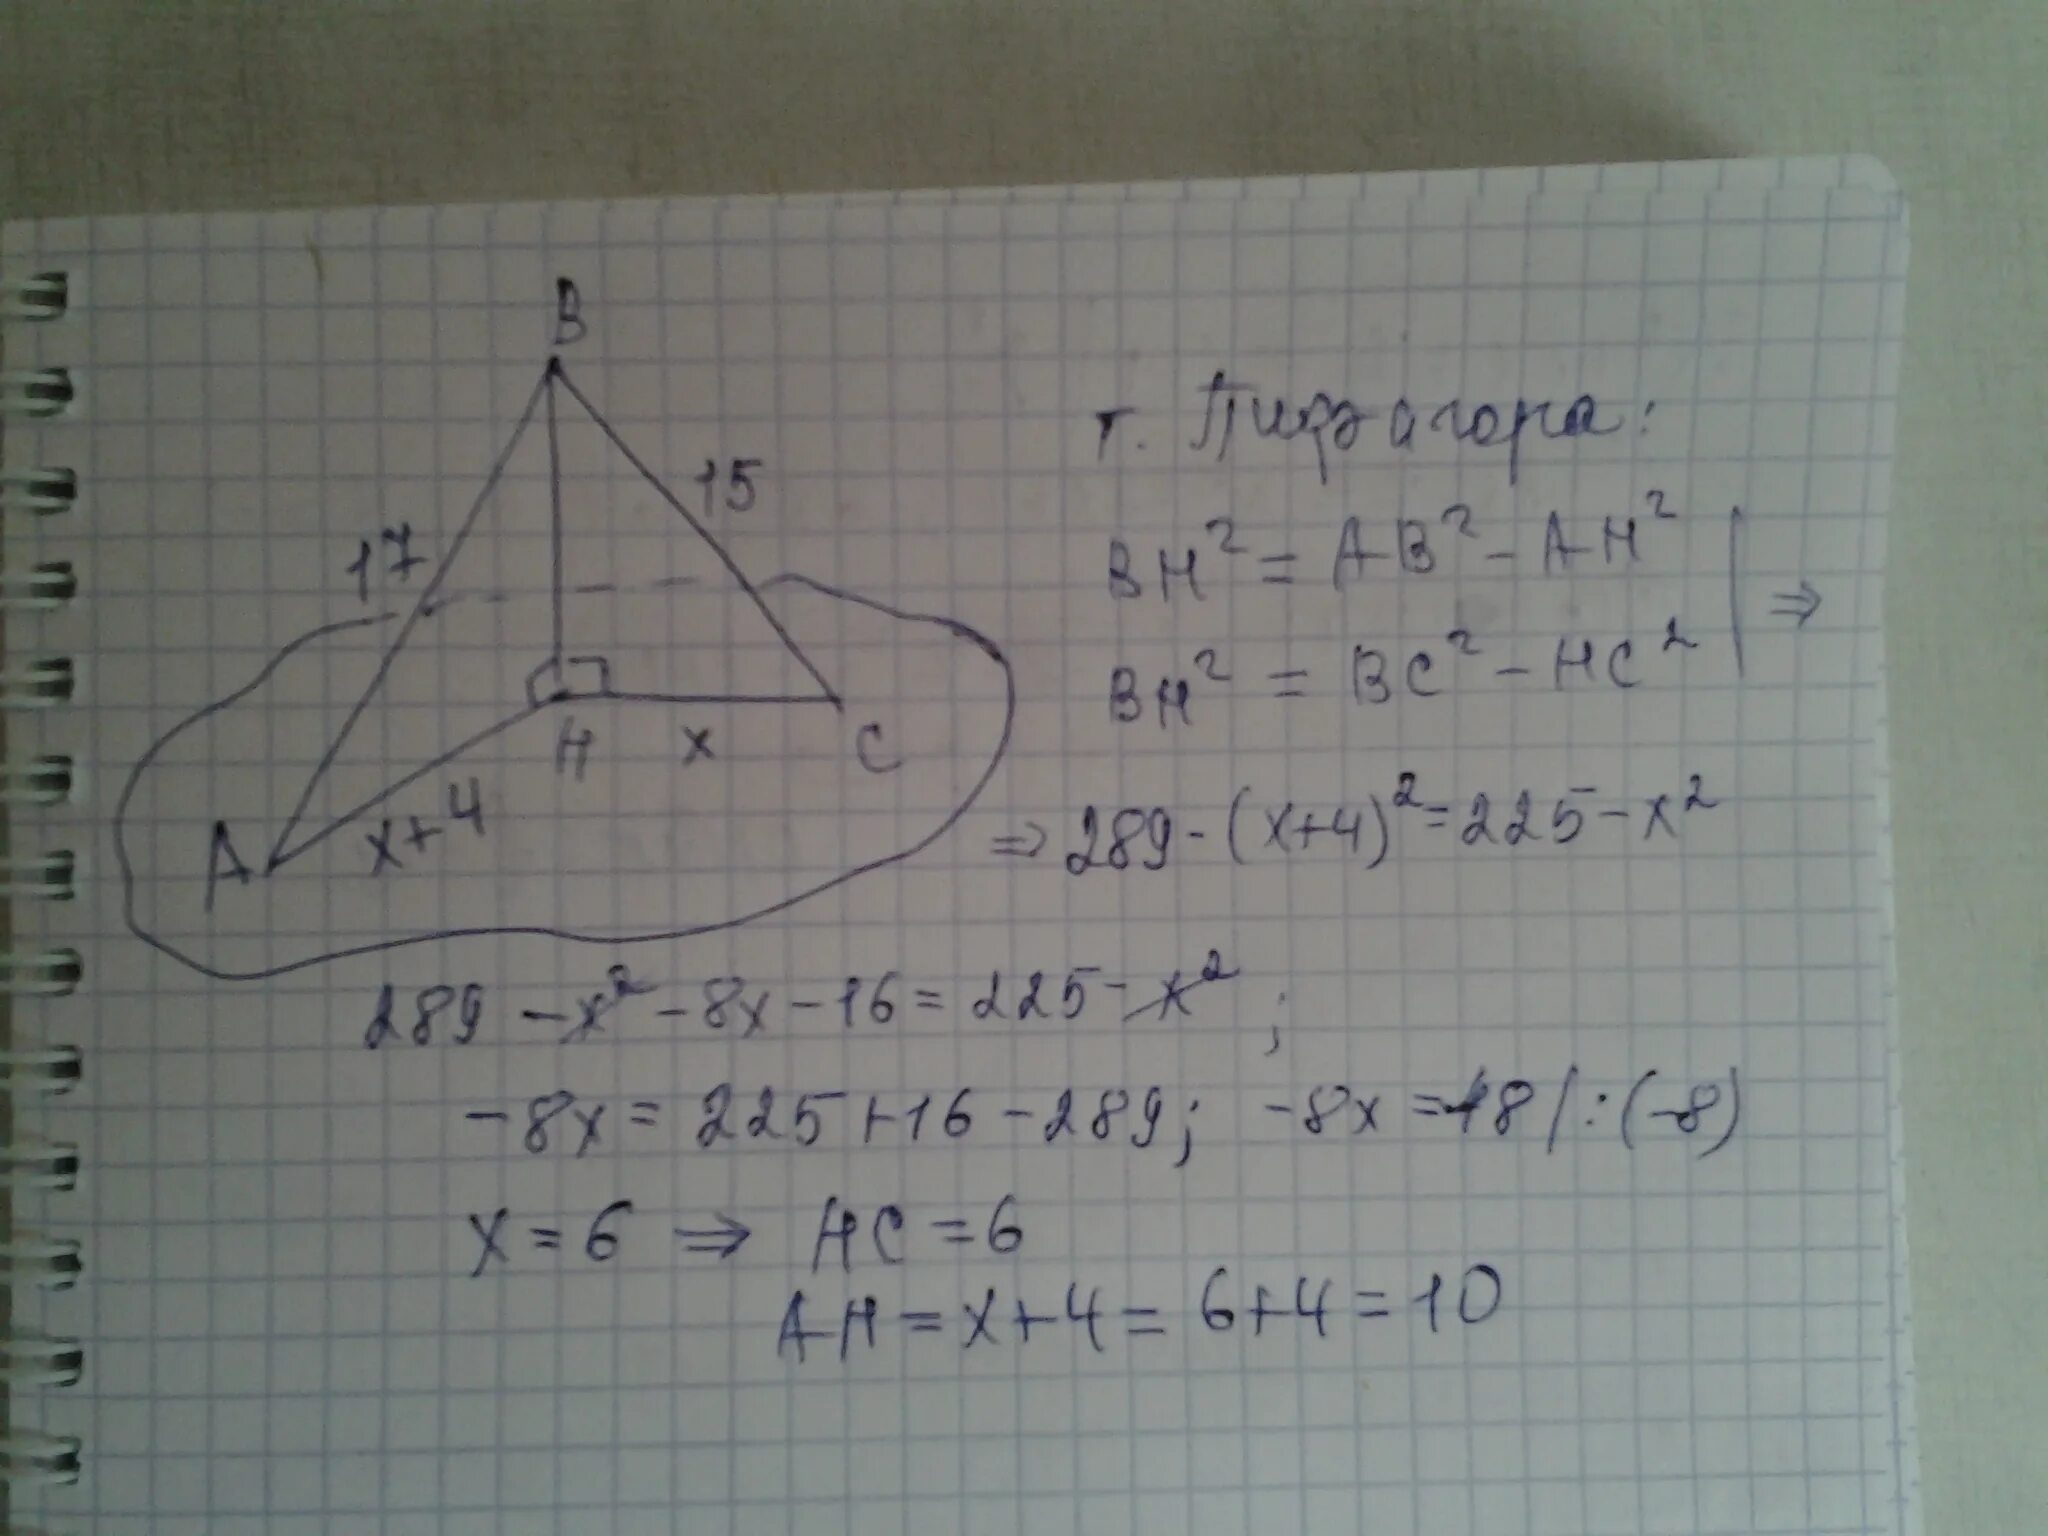 B
17
15
A
x+4
H
x
C
т. Пифагора:
BH² = AB² - AH²
BH² = BC² - HC² | ⇒
⇒ 289 - (x+4)² = 225 - x²
289 - x² - 8x - 16 = 225 - x² ;
-8x = 225 + 16 - 289; -8x = -48 /: (-8)
x = 6 ⇒ HC = 6
AH = x+4 = 6+4 = 10